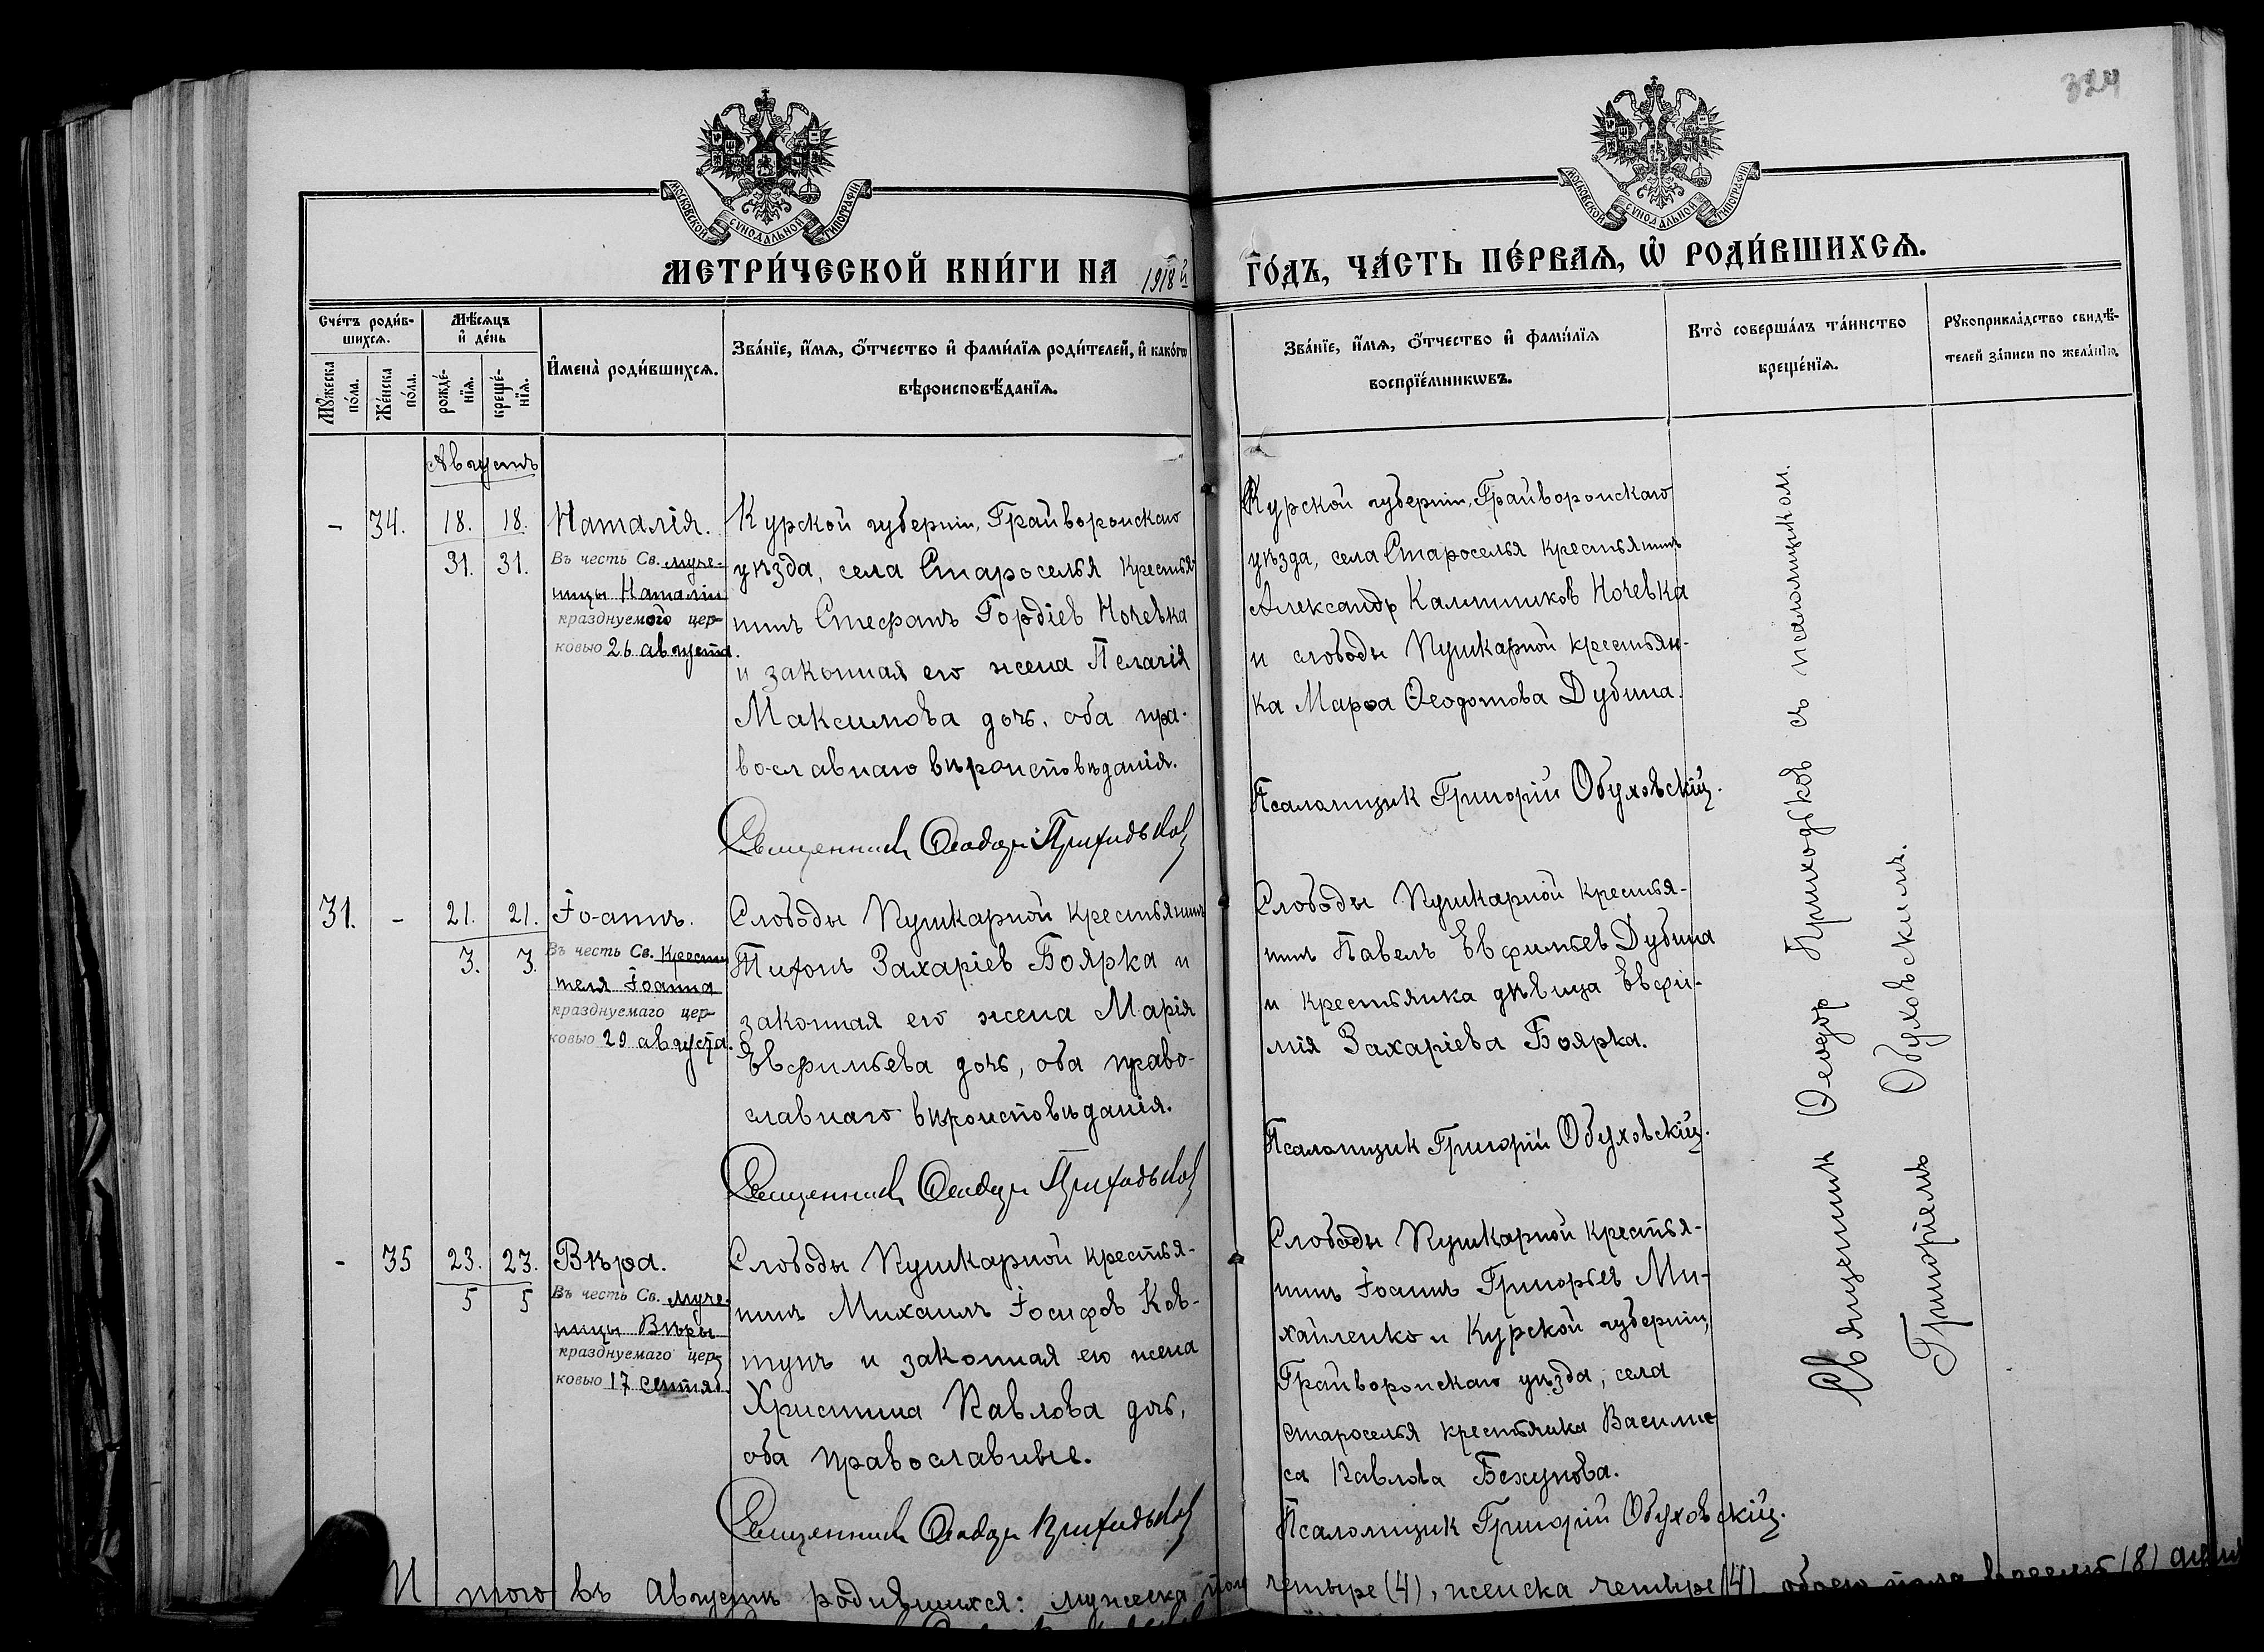 324
МОСКОВСКОЙ СУНОДАЛЬНОЙ ТИПОГРАФІИ
МОСКОВСКОЙ СУНОДАЛЬНОЙ ТИПОГРАФІИ
МЕТРИ́ЧЕСКОЙ КНИ́ГИ НА 1918й
ГО́ДЪ, ЧА́СТЬ ПЕ́РВАѦ, Ѡ҆ РОДИ́ВШИХСѦ.
Сче́тъ роди́в-
шихсѧ.
Мꙋ́жеска по́ла.
Же́нска по́ла.
Мѣ́сѧцъ
и҆ де́нь
рожде́-
нїѧ.
креще́-
нїѧ.
И҆мена̀ роди́вшихсѧ.
Зва́нїе, и҆́мѧ, ѻ҆́тчество и҆ фами́лїѧ роди́телей, и҆ како́гѡ
вѣроисповѣ́данїѧ.
Зва́нїе, и҆́мѧ, ѻ҆́тчество и҆ фами́лїѧ
воспрїе́мникѡвъ.
Кто̀ соверша́лъ та́инство
креще́нїѧ.
Рꙋкоприкла́дство свидѣ́-
телей за́писи по жела́нїю.
Августъ
- 34. 18. 18.
31. 31.
Наталія.
Въ честь Св. муче-
ницы Наталіи
празднуемого цер-
ковью 26 августа.
Курской губерніи, Грайворонскаго
уѣзда, села Староселья крестья-
нинъ Стефанъ Гордіев Ночевка
и законная его жена Пелагія
Максимова дочь, оба пра-
вославнаго вѣроисповѣданія.
Священникъ Ѳеодоръ Приходьков
Курской губерніи, Грайворонскаго
уѣзда, села Староселья крестьянинъ
Александр Калинников Ночевка
и слободы Пушкарной крестьян-
ка Марѳа Ѳеодотова Дубина.
Псаломщик Григорій Обуховскій.
31. - 21. 21.
3. 3.
Іоаннъ.
Въ честь Св. Крести
теля Іоанна
празднуемаго цер-
ковью 29 августа.
Слободы Пушкарной крестьянинъ
Тихонъ Захаріев Боярка и
законная его жена Марія
Евфимьева дочь, оба право-
славнаго вѣроисповѣданія.
Священникъ Ѳеодоръ Приходьков
Слободы Пушкарной крестья-
нин Павелъ Евфимьев Дубина
и крестьянка дѣвица Евфи-
мія Захаріева Боярка.
Псаломщик Григорій Обуховскій.
- 35 23. 23.
5 5
Вѣра.
Въ честь Св. муче-
ницы Вѣры
празднуемаго цер-
ковью 17 сентяб.
Слободы Пушкарной крестья-
нин Михаилъ Іосифов Ков-
тунъ и законная его жена
Христина Павлова дочь,
оба православные.
Священникъ Ѳеодоръ Приходьков
Слободы Пушкарной крестья-
нинъ Іоаннъ Григорьев Ми-
хайленко и Курской губерніи,
Грайворонскаго уѣзда, села
Староселья крестьянка Васили-
са Павлова Бежунова.
Псаломщик Григорій Обуховскій.
Священник Ѳеодор Приходьков съ псаломщиком
Григоріемъ Обуховскимъ.
И того въ Августѣ родившихся: мужеска пола четыре (4), женска четыре (4), обоего пола восемь (8)